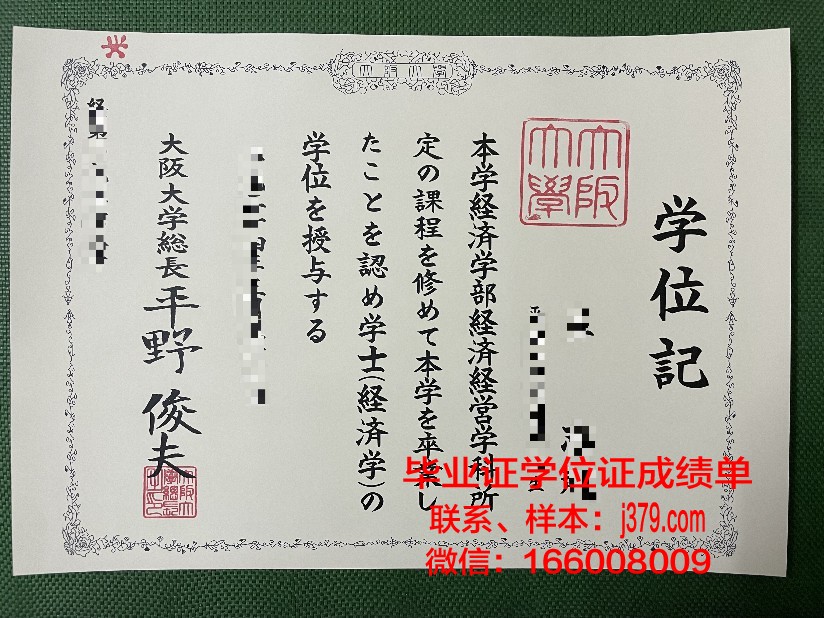 学位記
大阪大學
本学経済学部経済経営学科所
定の課程を修めて本学を卒業し
たことを認め学士(経済学)の
学位を授与する
大阪大学総長 平野 俊夫
毕业证学位证成绩单
联系、样本：j379.com
微信：166008009